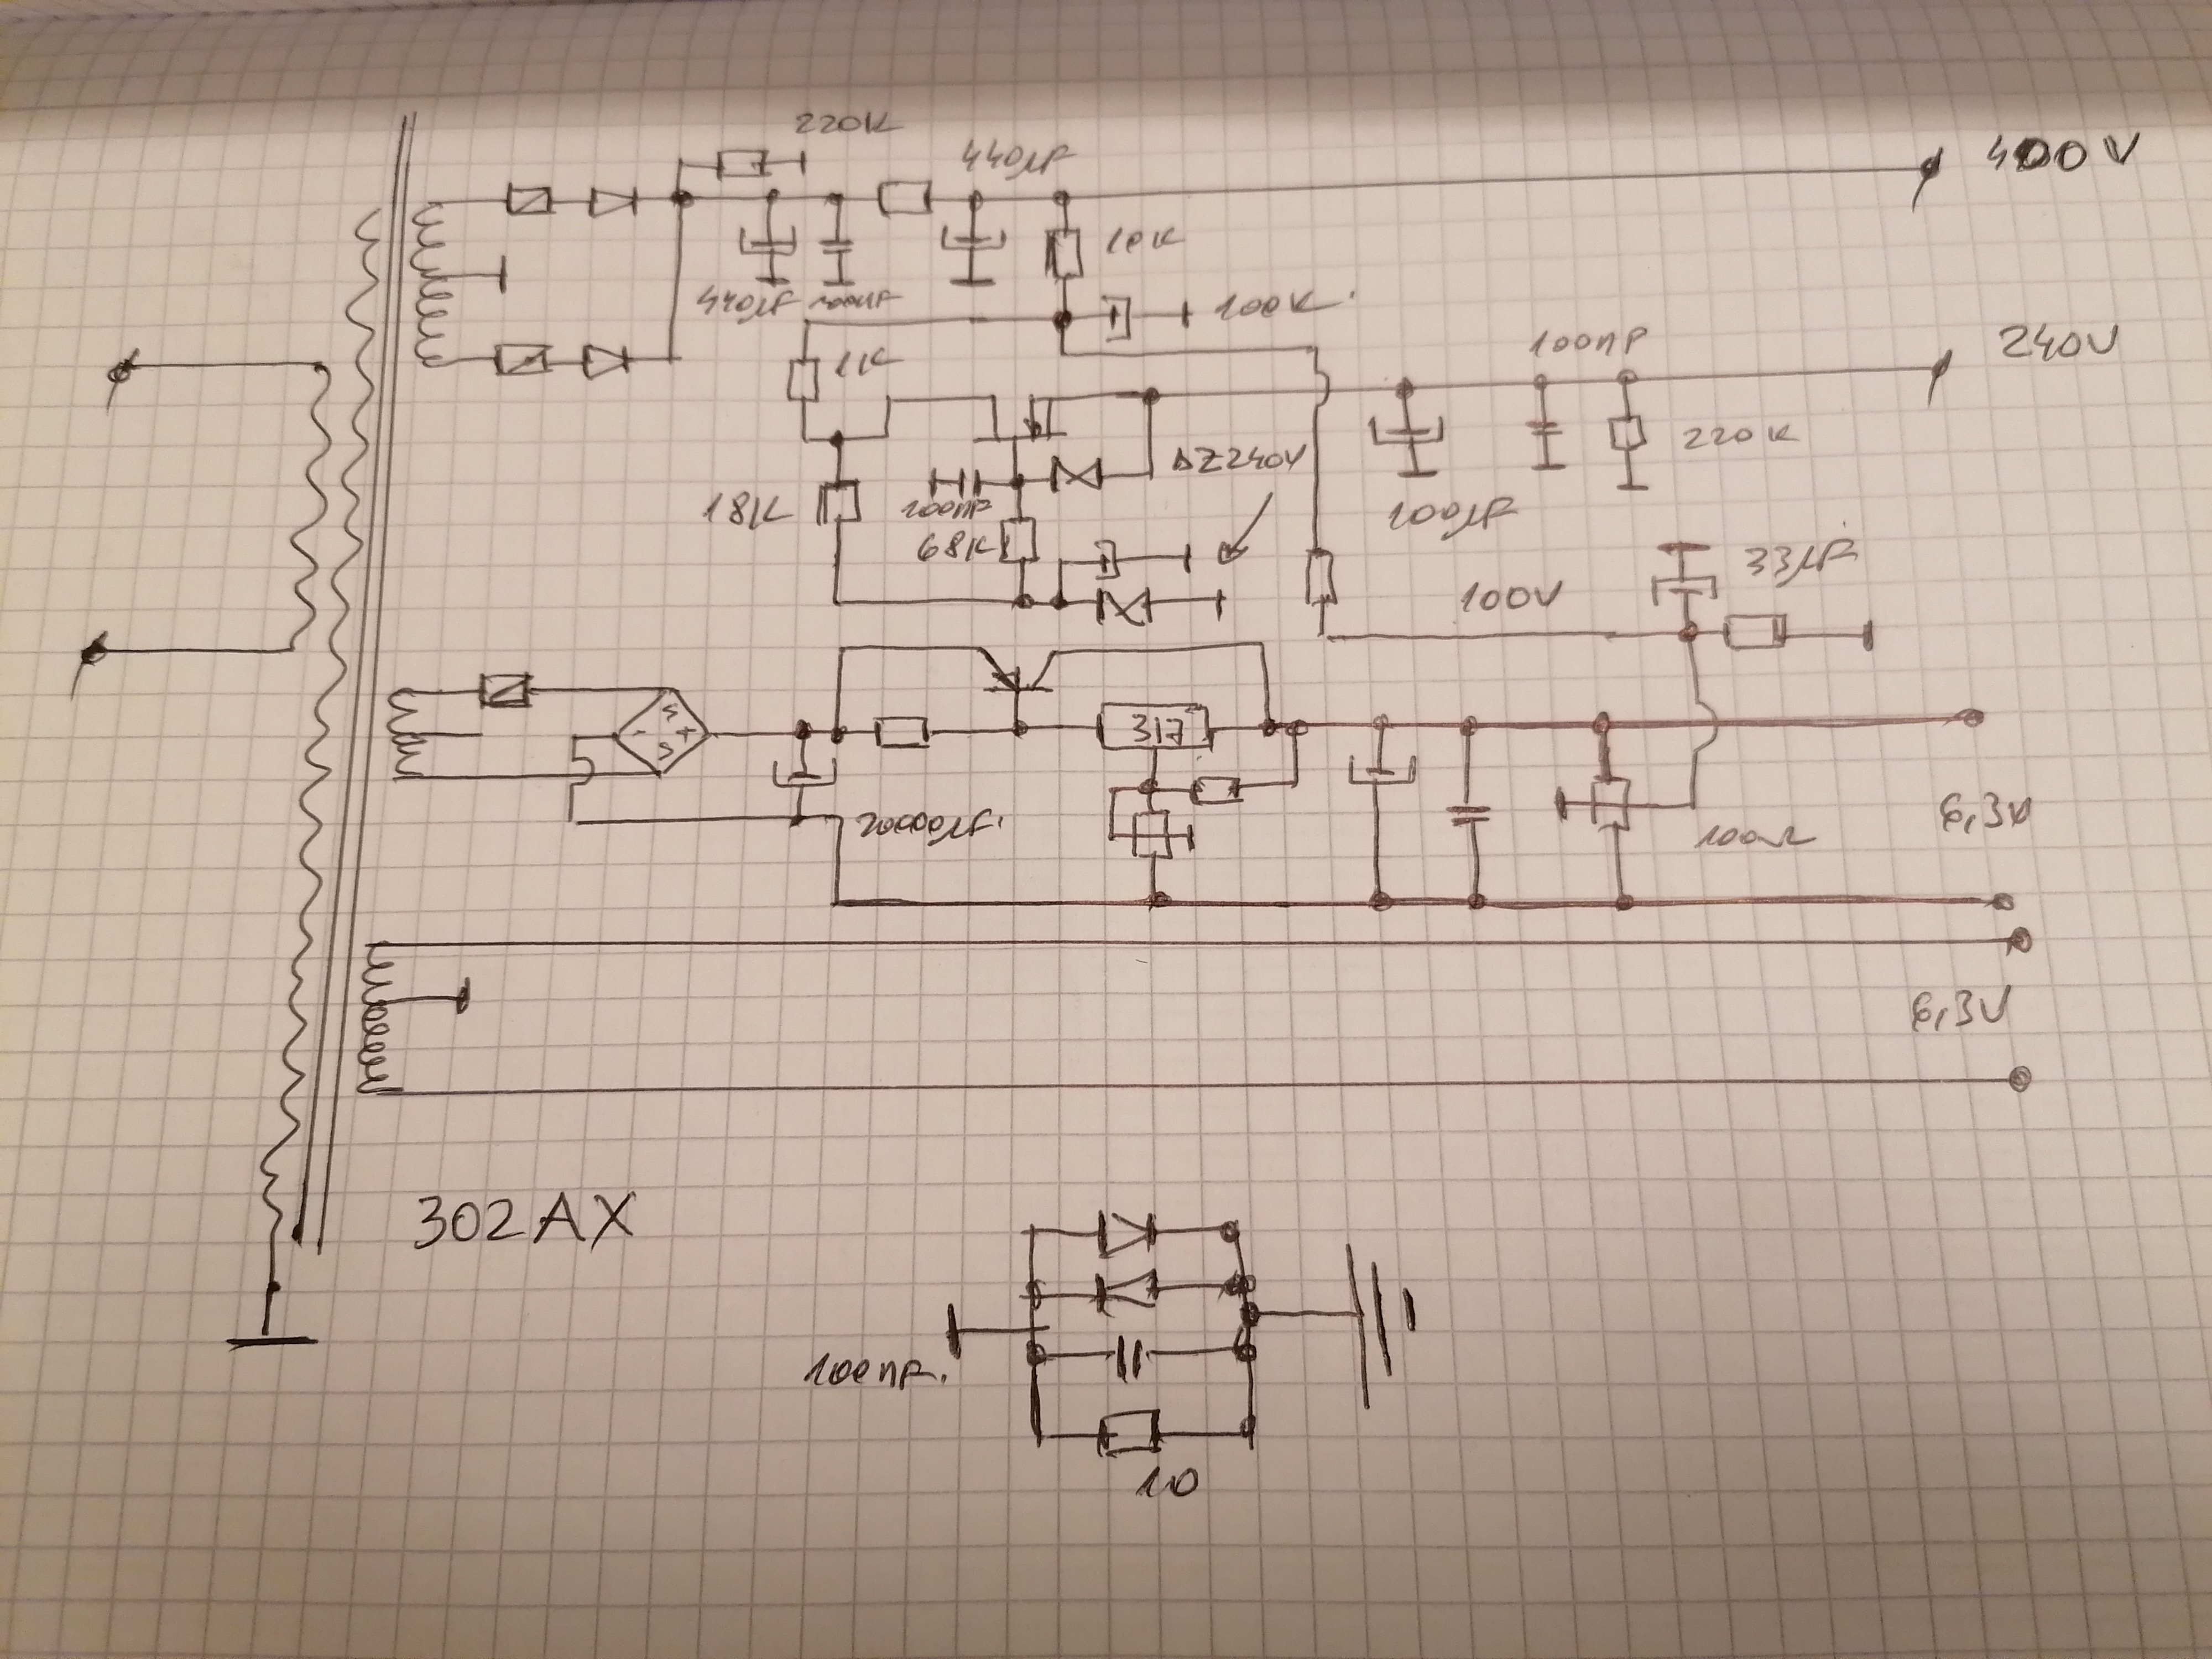 220K
440µF
400V
10K
440µF 100nF
100K
1K
100nF
240V
DZ240V
220K
18K
100nF
100µF
68K
33µF
100V
317
20000µF
6,3V
100Ω
6,3V
302AX
100nF
10